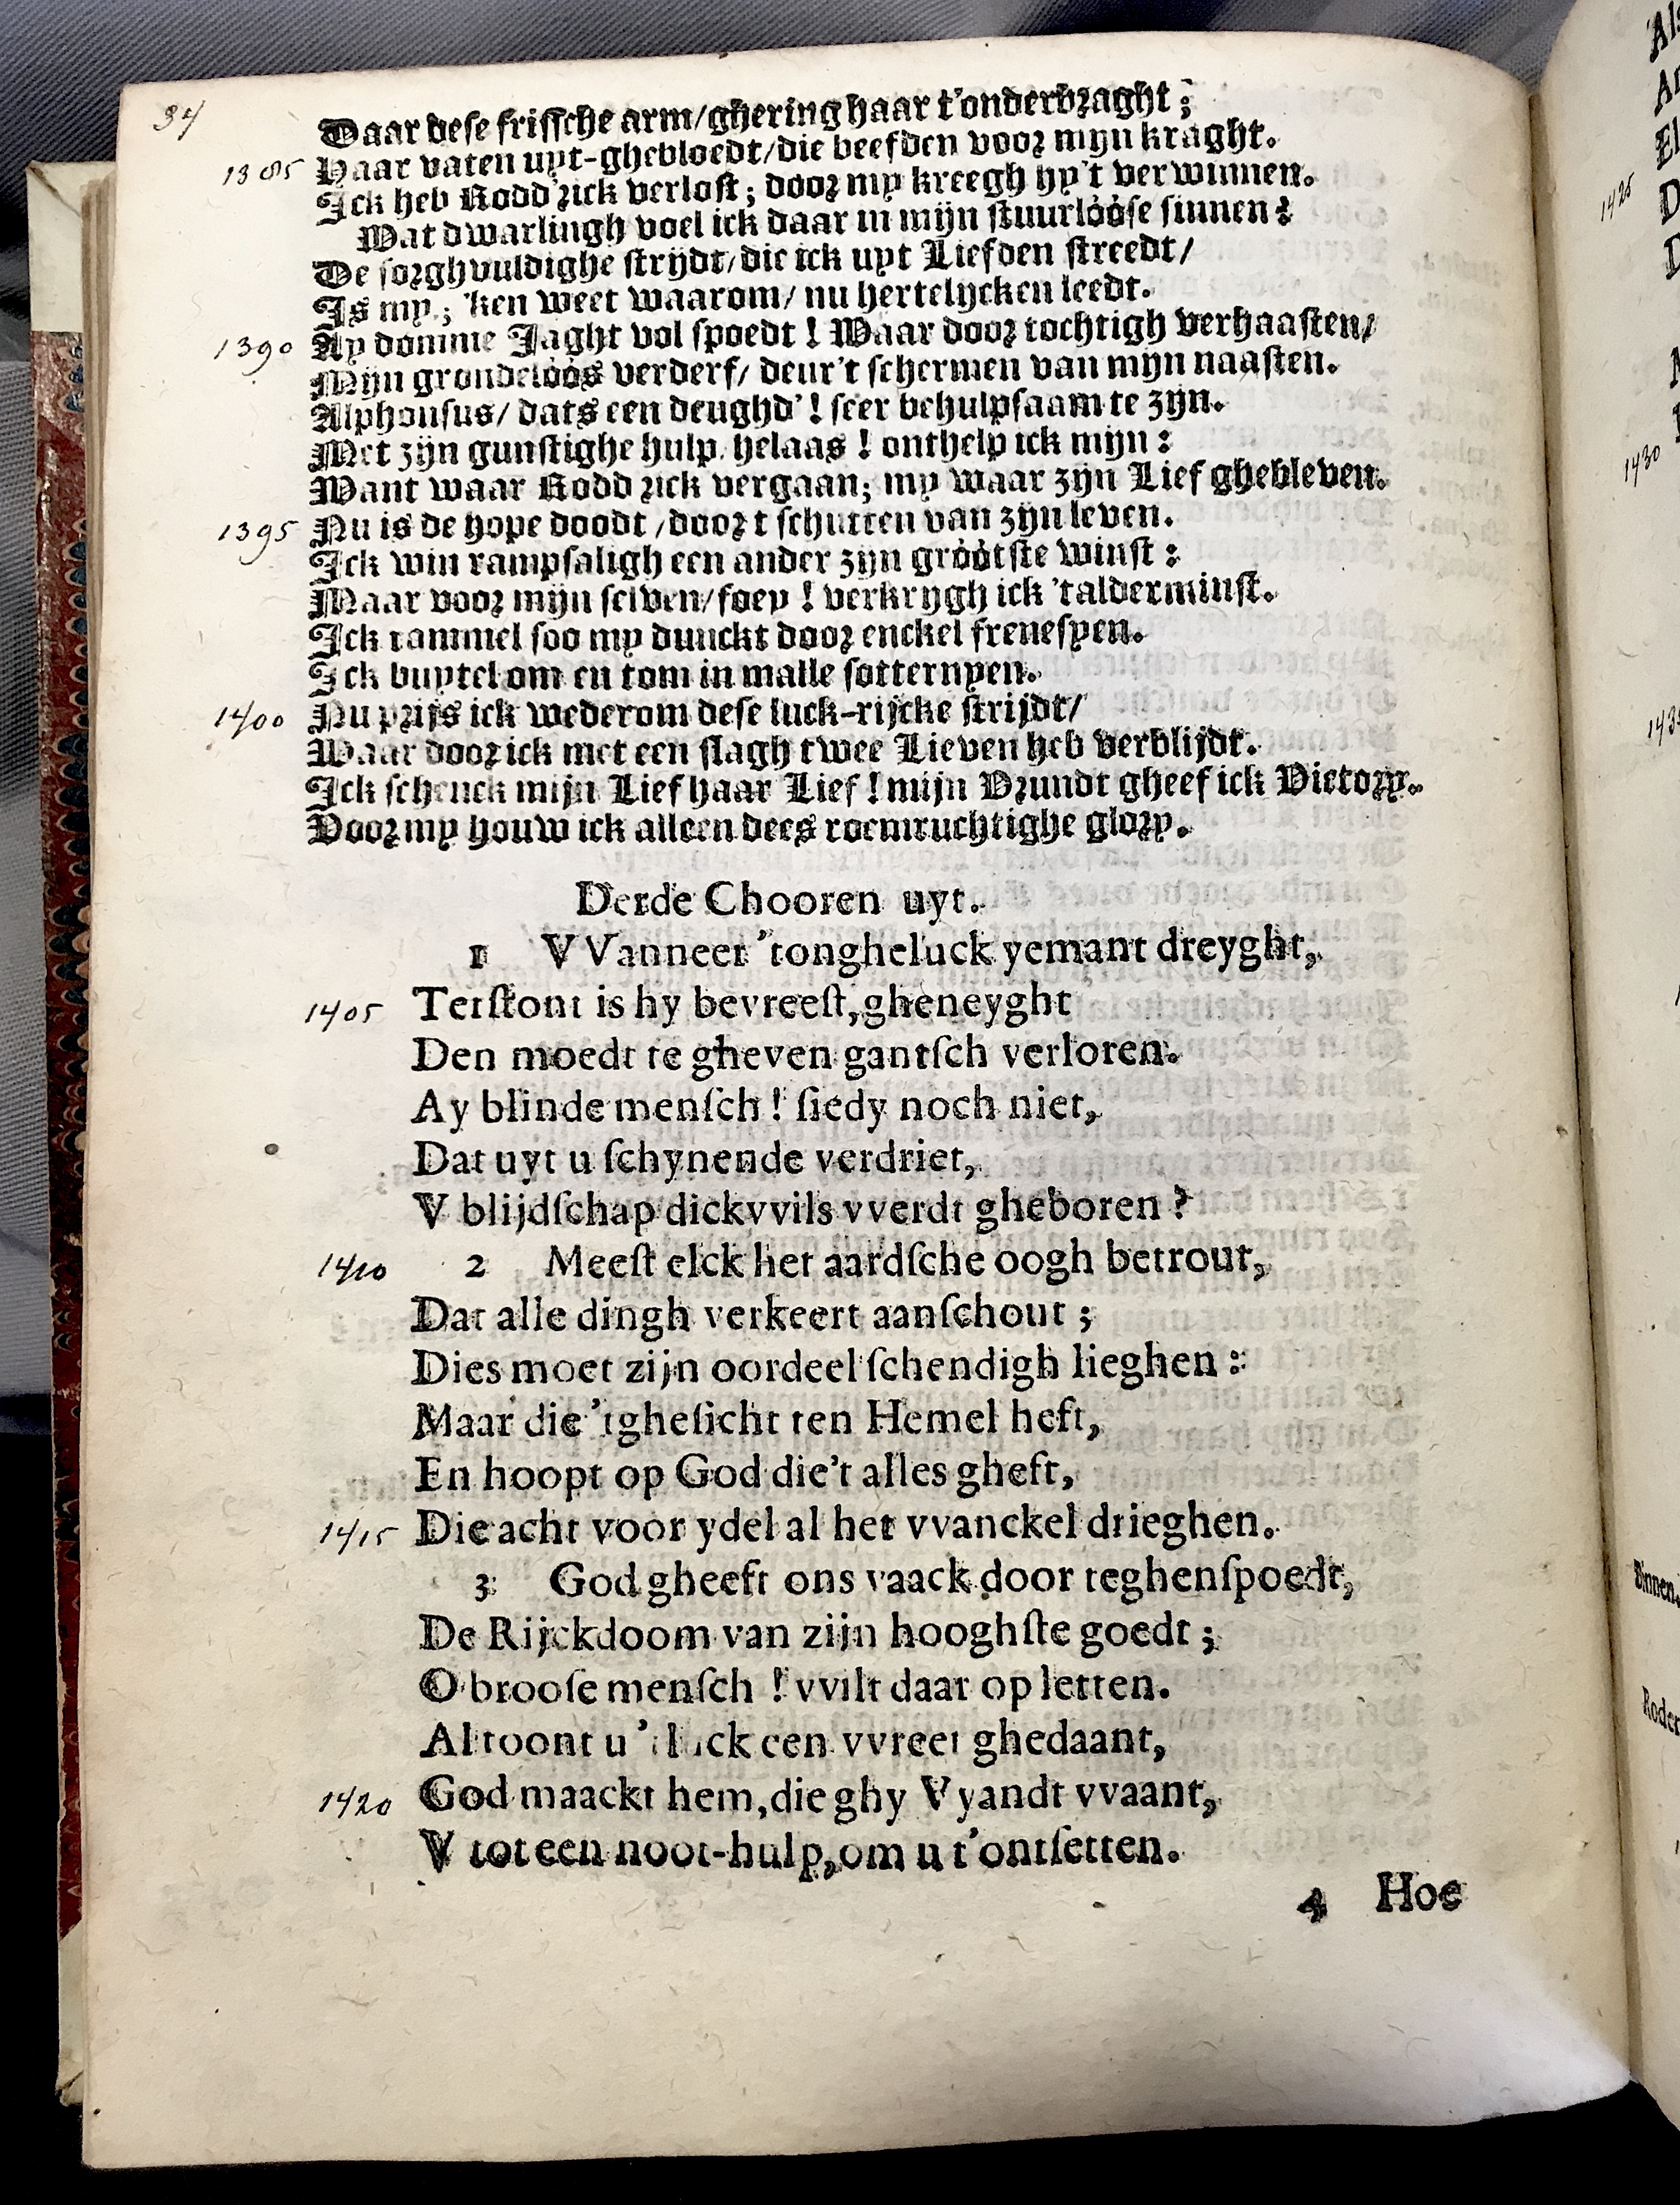 34
Daar dese frissche arm/ghering haar t'onderbraght;
1385 Haar vaten uyt-ghebloedt/die beefden voor mijn kraght.
Ick heb Rodd'rick verlost; door my kreegh hy't verwinnen.
Wat dwarlingh voel ick daar in mijn stuurlóóse sinnen?
De sorghvuldighe strijdt/die ick uyt Liefden streedt/
Is my; 'ken weet waarom/nu hertelycken leedt.
1390 Ay domme Jaght vol spoedt! Waar door tochtigh verhaasten/
Mijn grondelóós verderf/deur't schermen van mijn naasten.
Alphonsus/dats een deughd'! seer behulpsaam te zijn.
Met zijn gunstighe hulp, helaas! onthelp ick mijn:
Want waar Rodd'rick vergaan; my waar zijn Lief ghebleven.
1395 Nu is de hope doodt/door t schutten van zijn leven.
Ick win rampsaligh een ander zijn gróótste winst:
Maar voor mijn selven/foey! verkrygh ick 'talderminst.
Ick rammel soo my dunckt door enckel frenesyen.
Ick buytel om en tom in malle sotternyen.
1400 Nu prijs ick wederom dese luck-rijcke strijdt/
Waar door ick met een slagh twee Lieven heb verblijdt.
Ick schenck mijn Lief haar Lief! mijn Vrundt gheef ick Victory.
Door my houw ick alleen dees roemruchtighe glory.
Derde Chooren uyt.
1 VVanneer 'tongheluck yemant dreyght,
1405 Terſtont is hy bevreeſt, gheneyght
Den moedt te gheven gantſch verloren.
Ay blinde menſch! ſiedy noch niet,
Dat uyt u ſchynende verdriet,
V blijdſchap dickvvils vverdt gheboren?
1410 2 Meeſt elck het aardſche oogh betrout,
Dat alle dingh verkeert aanſchout;
Dies moet zijn oordeel ſchendigh lieghen:
Maar die 'tgheſicht ten Hemel heft,
En hoopt op God die't alles gheft,
1415 Die acht voor ydel al het vvanckel drieghen.
3 God gheeft ons vaack door teghenſpoedt,
De Rijckdoom van zijn hooghſte goedt;
O brooſe menſch! vvilt daar op letten.
Al toont u 't luck een vvreet ghedaant,
1420 God maackt hem, die ghy Vyandt vvaant,
V tot een noot-hulp, om u t'ontſetten.
4 Hoe
1425
1430
Binnen.